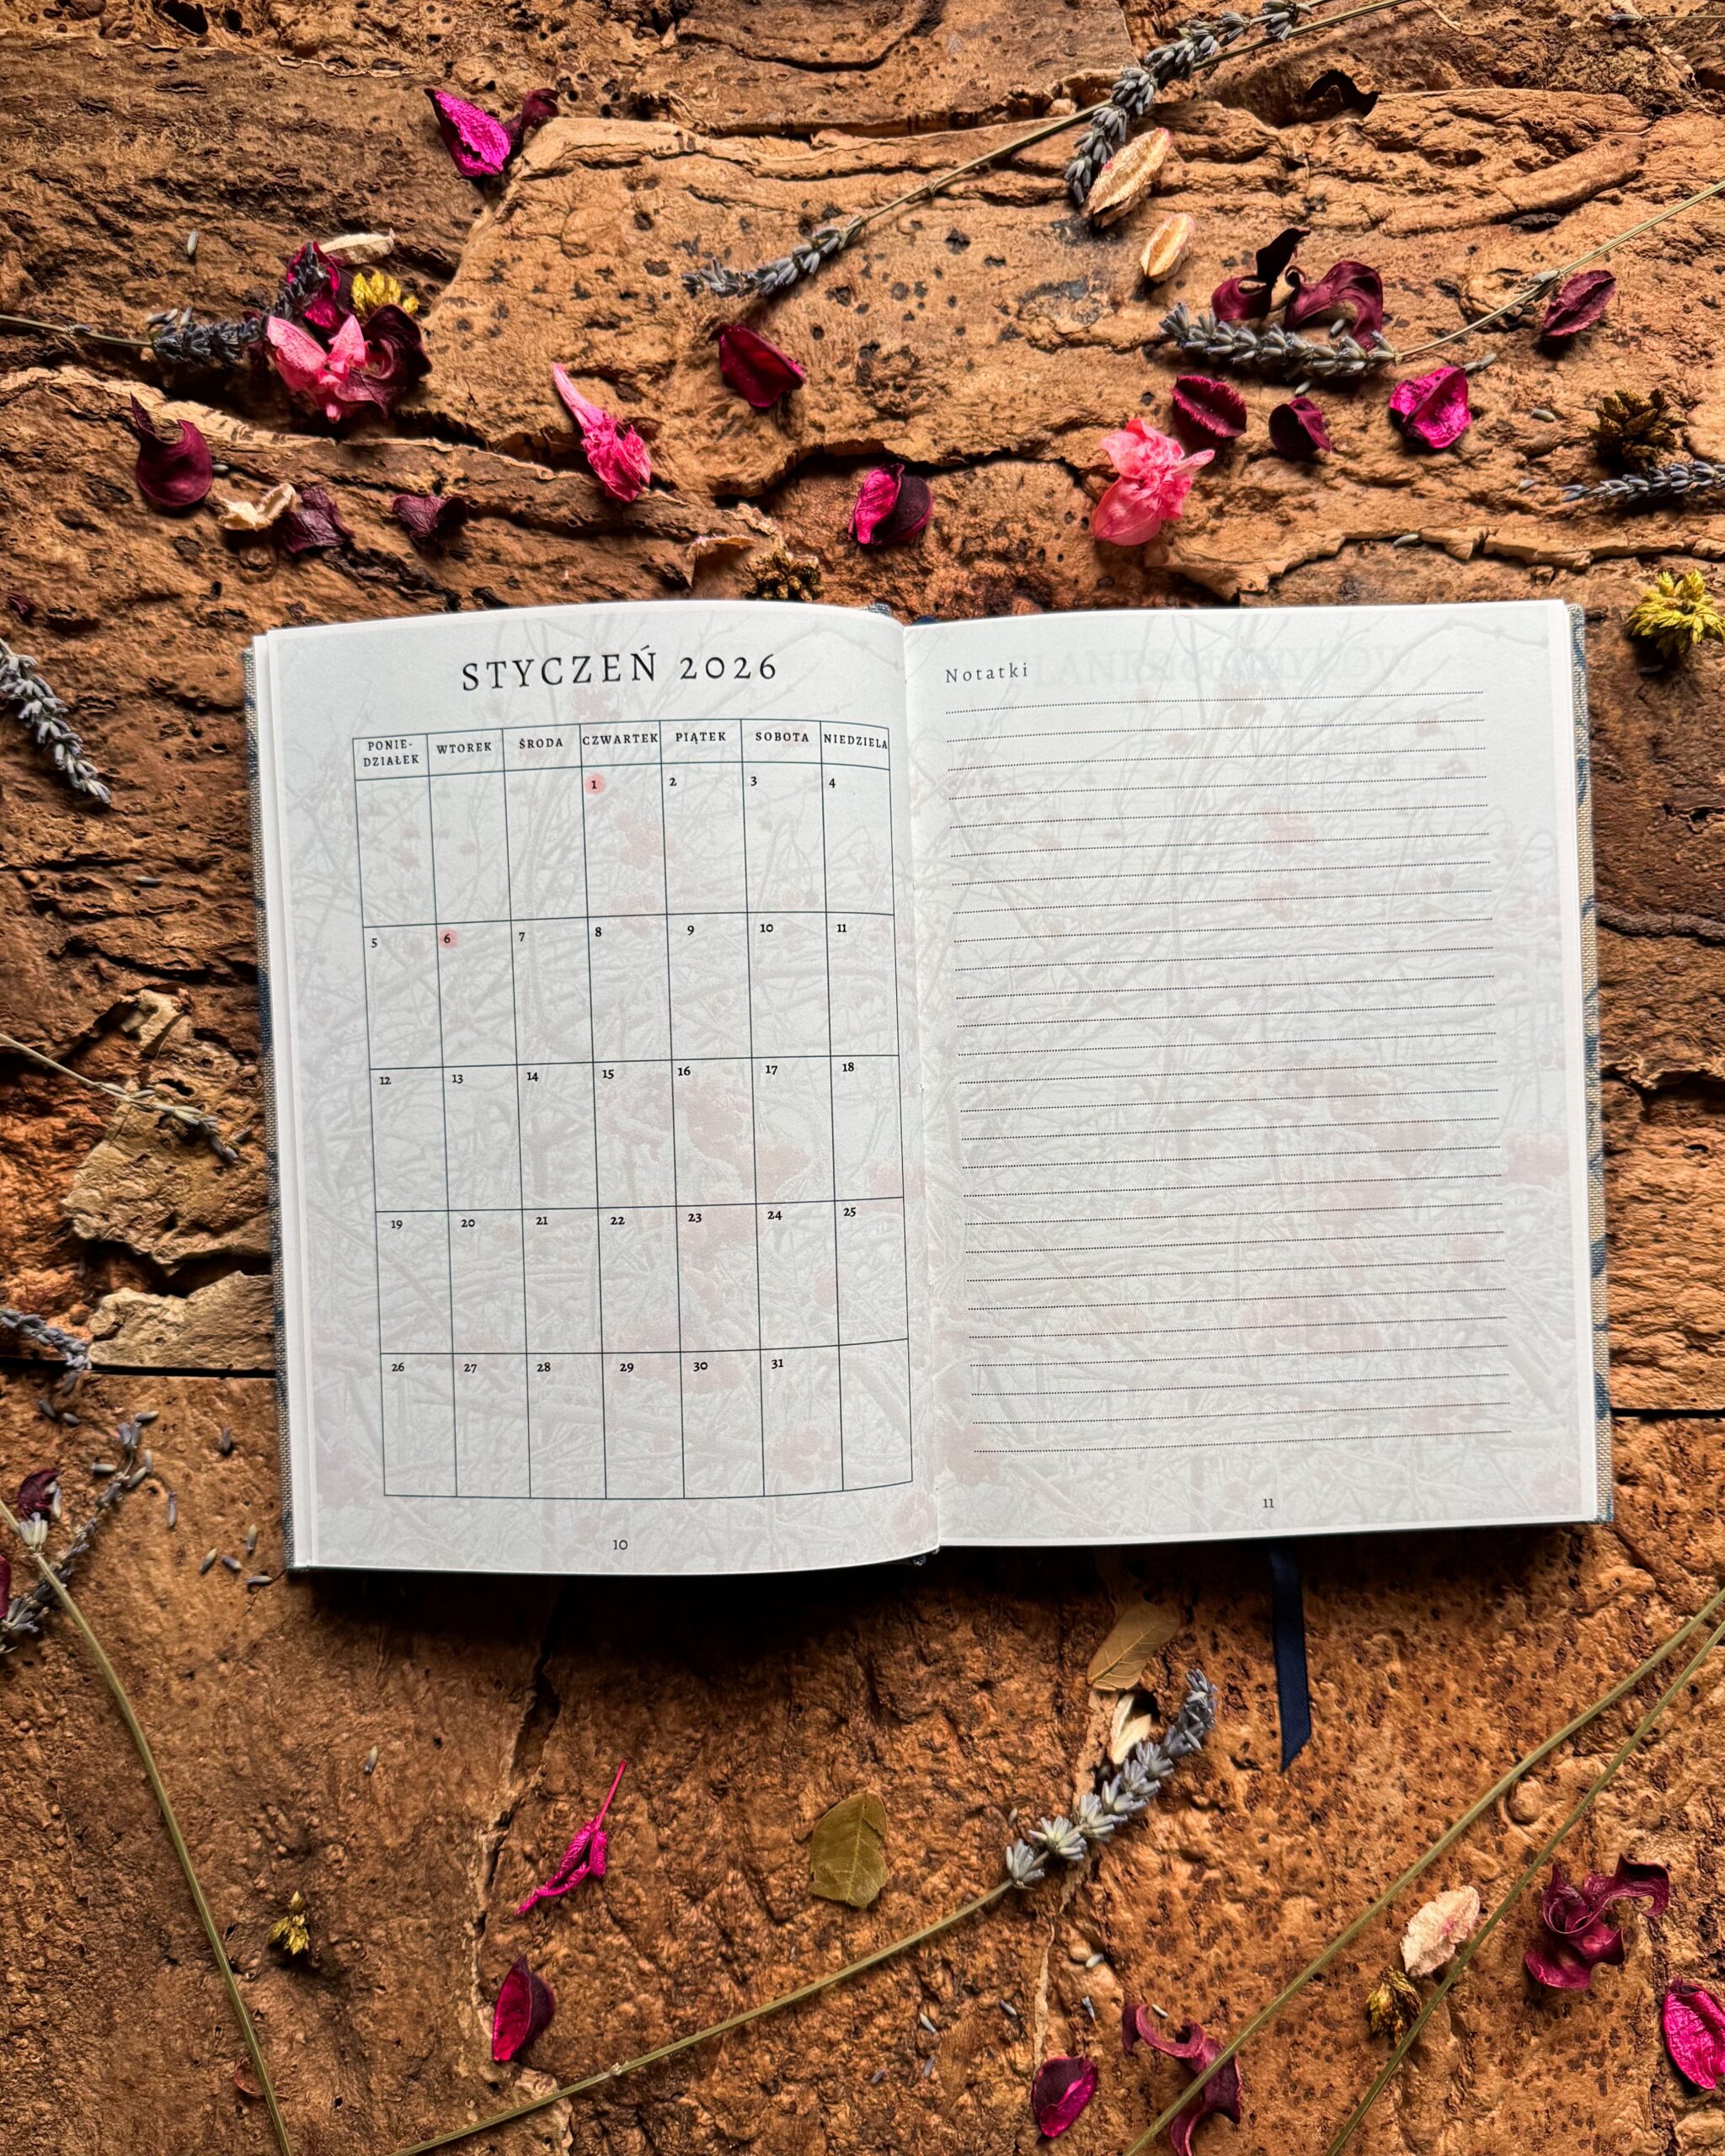 STYCZEŃ 2026
PONIE-
DZIAŁEK WTOREK ŚRODA CZWARTEK PIĄTEK SOBOTA NIEDZIELA
1 2 3 4
5 6 7 8 9 10 11
12 13 14 15 16 17 18
19 20 21 22 23 24 25
26 27 28 29 30 31
10
Notatki
11